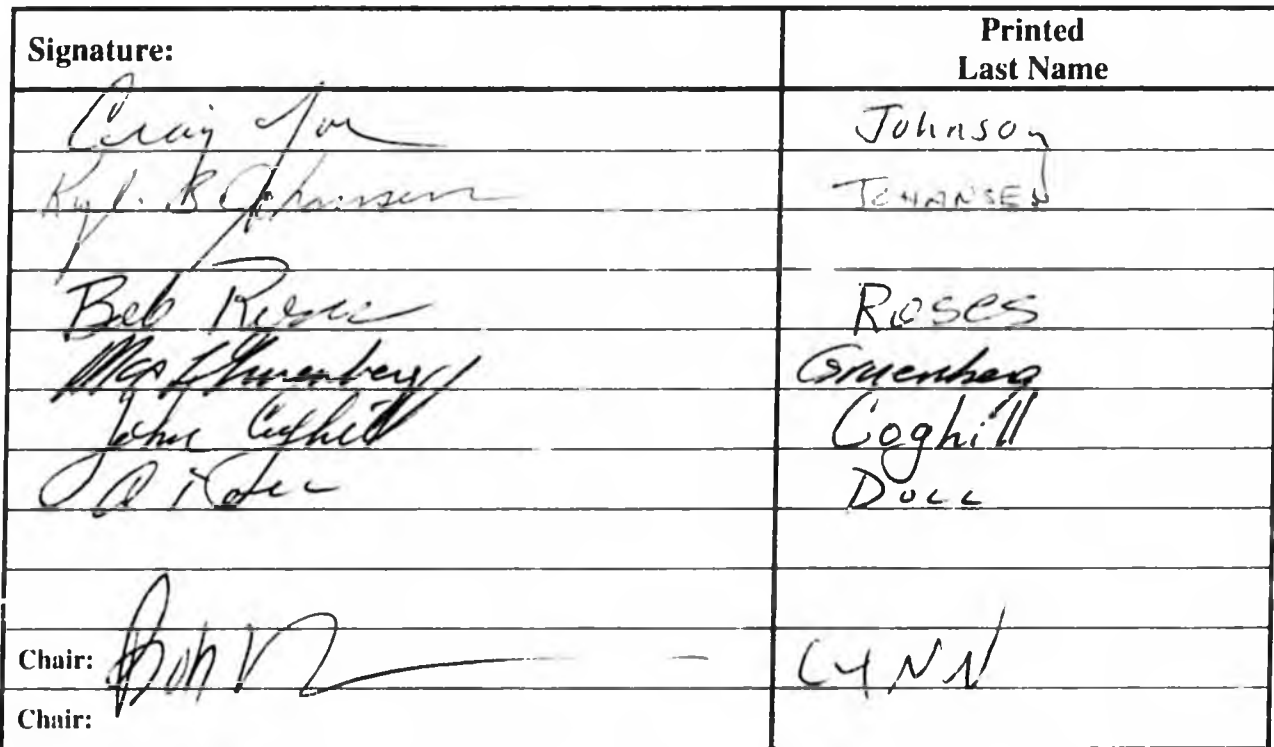 Signature: Printed
Last Name
Craig Johnson
Kyle B Johansen JOHANSEN
Bob Roses Roses
Max Gruenberg Gruenberg
John Coghill Coghill
Doll Doll
Chair: Bob LYNN
Chair: